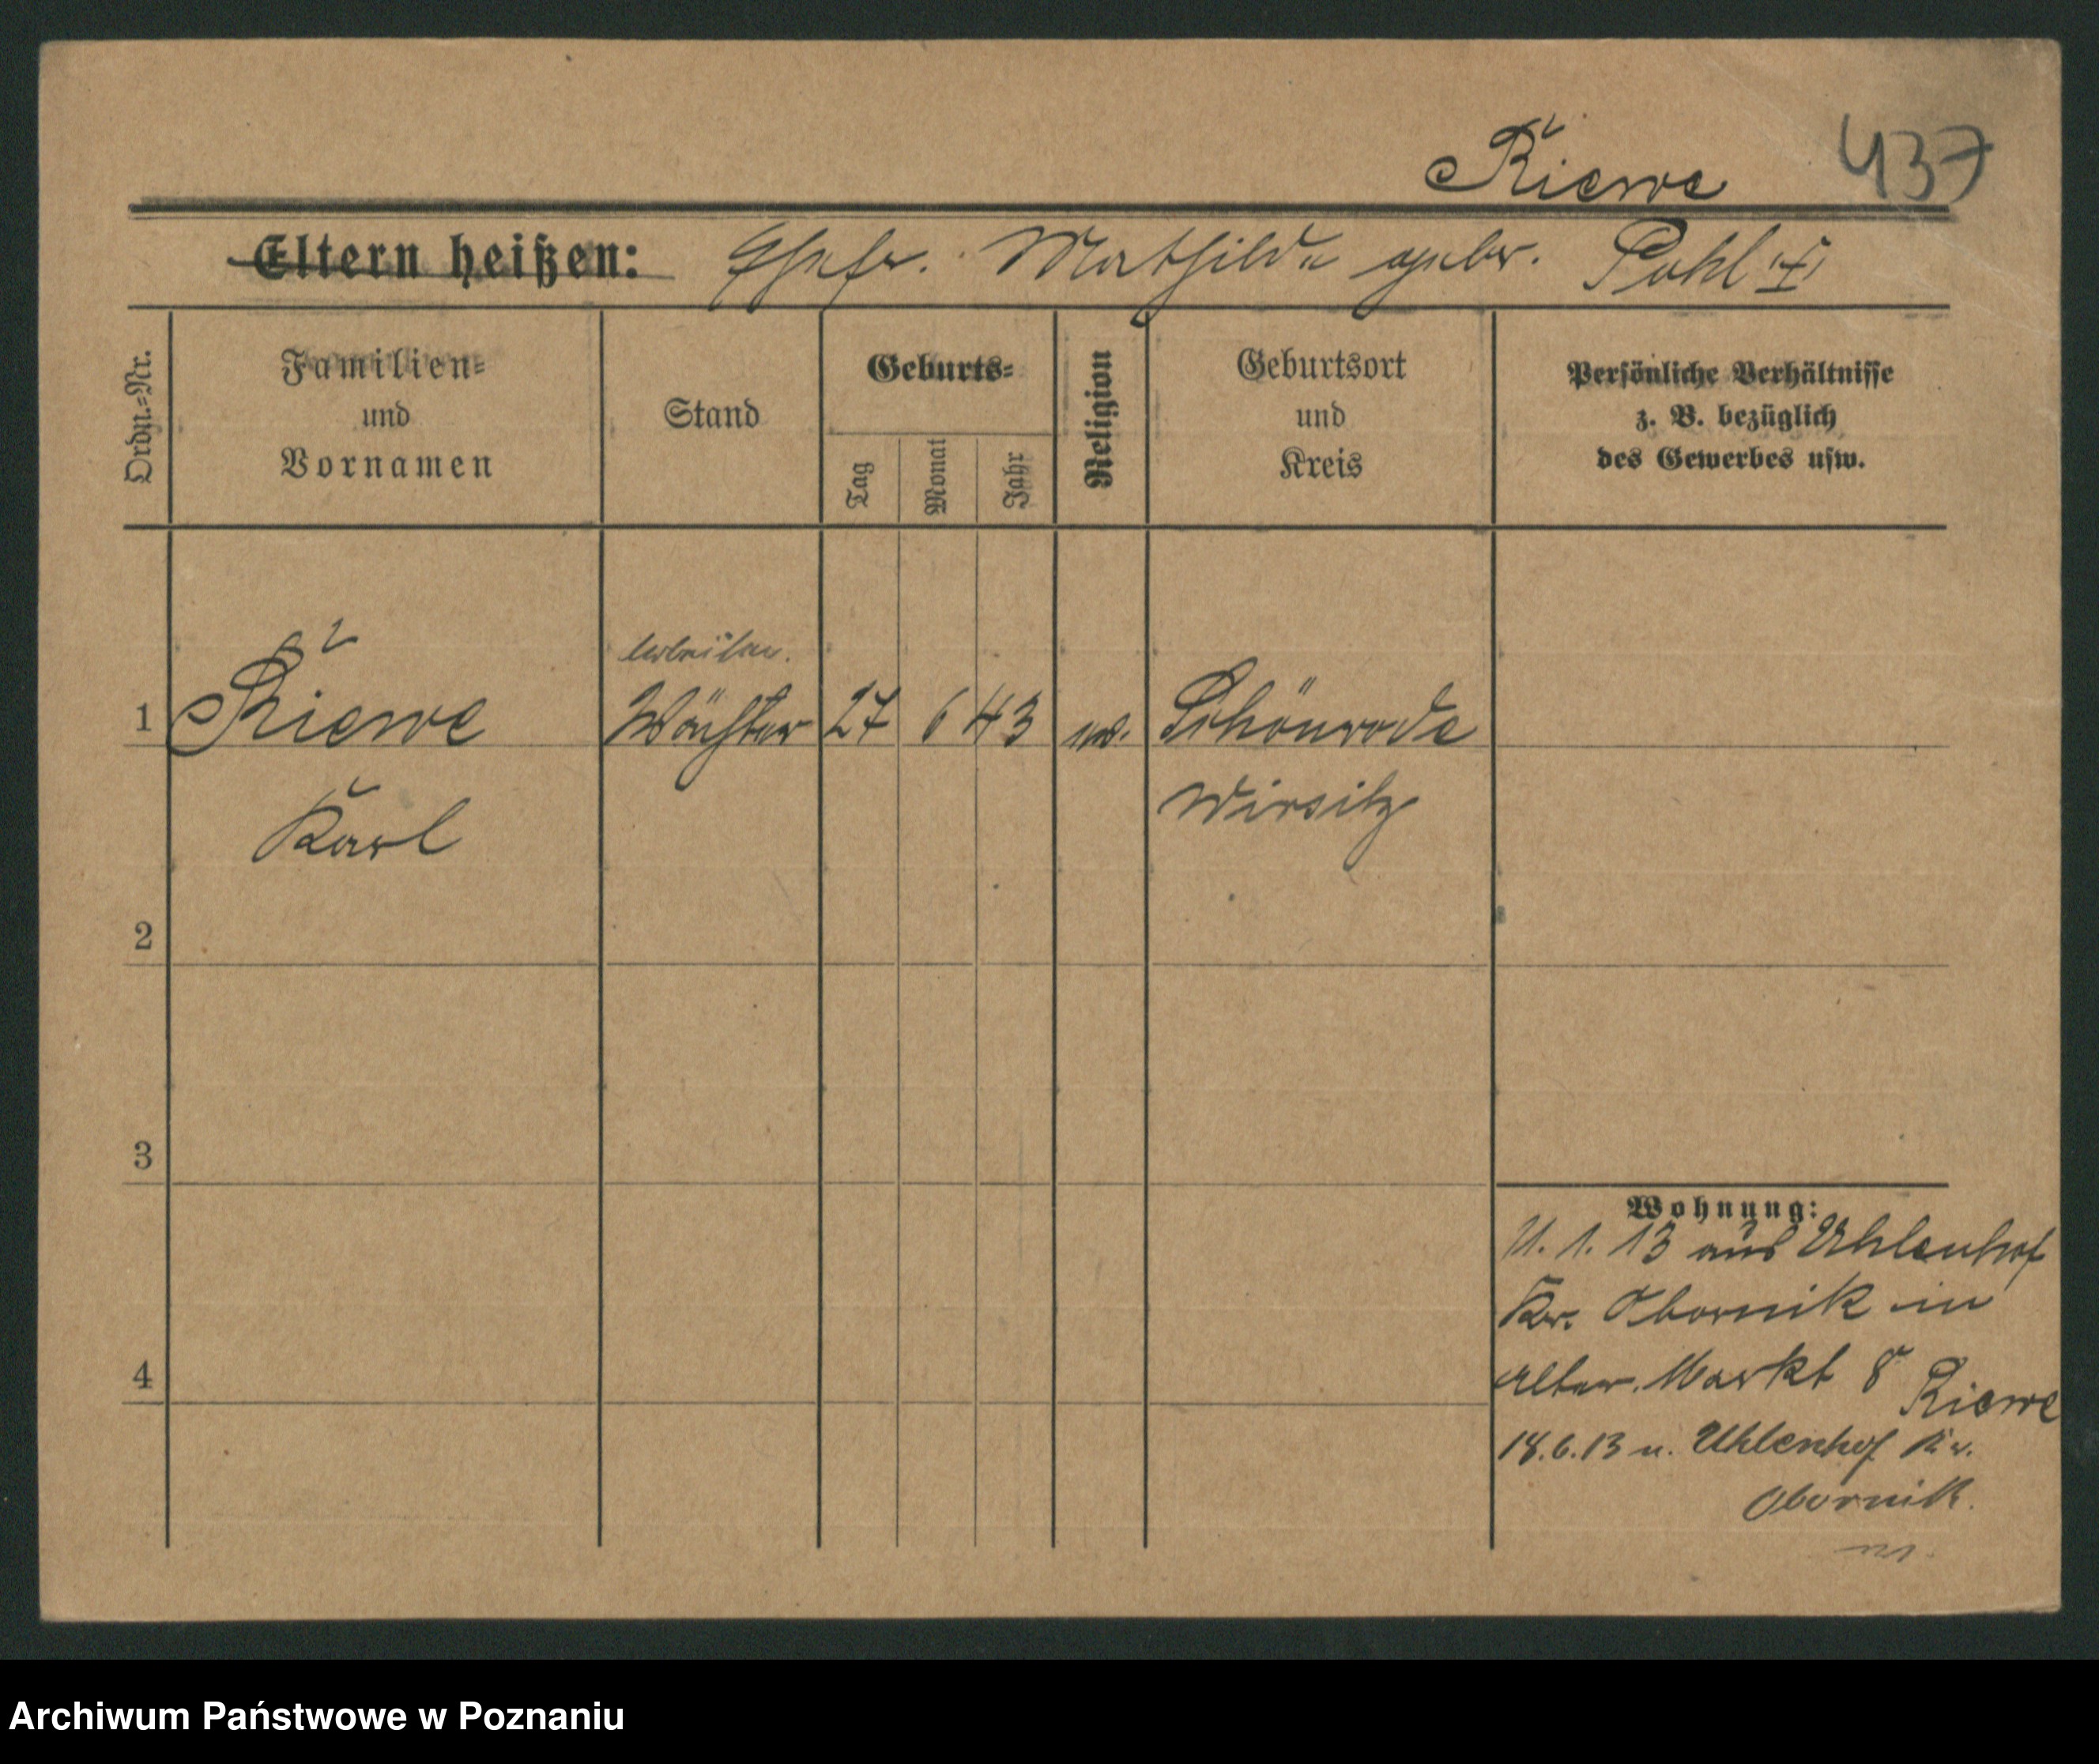 Riewe 437
Eltern heißen: Ehefr. Mathilde gebr. Pohl
Ordn.-Nr.
Familien-
und
Vornamen
Stand
Geburts-
Tag
Monat
Jahr
Religion
Geburtsort
und
Kreis
Persönliche Verhältnisse
z. B. bezüglich
des Gewerbes usw.
1 Riewe Wächter 27 6 43 ev. Schönrode
Karl Wirsitz
2
3
4
Wohnung:
11. 1. 13 aus Uhlenhof
Kr. Obornik in
Alter. Markt 8 Riewe
18.6.13 n. Uhlenhof Kr.
Obornik.
Archiwum Państwowe w Poznaniu